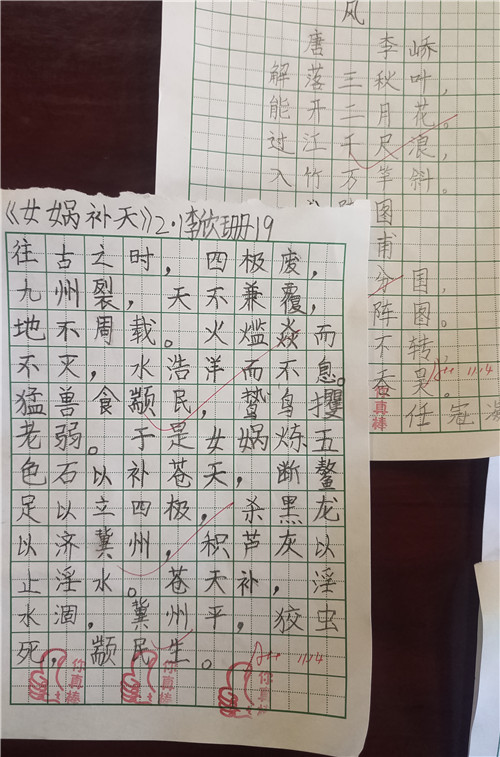 风
唐 李峤
解落三秋叶，
能开二月花。
过江千尺浪，
入竹万竿斜。
图
甫
分国，
阵图。
不转
吞吴。
11.14
真棒
任冠
《女娲补天》2.1李欣珊19
往古之时，四极废，
九州裂，天不兼覆，
地不周载。火爁焱而
不灭，水浩洋而不息。
猛兽食颛民，鸷鸟攫
老弱。于是女娲炼五
色石以补苍天，断鳌
足以立四极，杀黑龙
以济冀州，积芦灰以
止淫水。苍天补，淫
水涸，冀州平，狡虫
死，颛民生。
11.14
你真棒
你真棒
你真棒